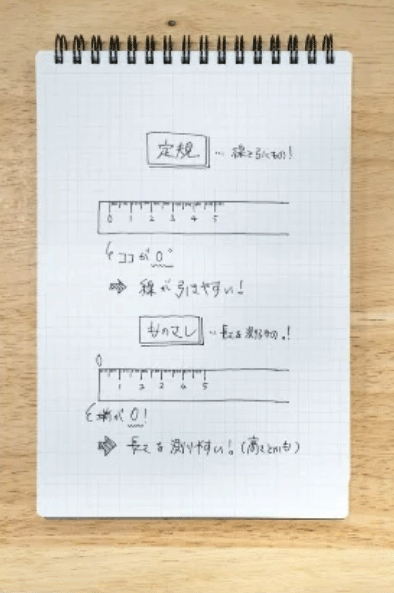 定規 … 線を引くもの!
0 1 2 3 4 5
ココが 0
⇒ 線が引きやすい!
ものさし … 長さを測るもの!
0
1 2 3 4 5
端が 0!
⇒ 長さを測りやすい!(高さとかも)